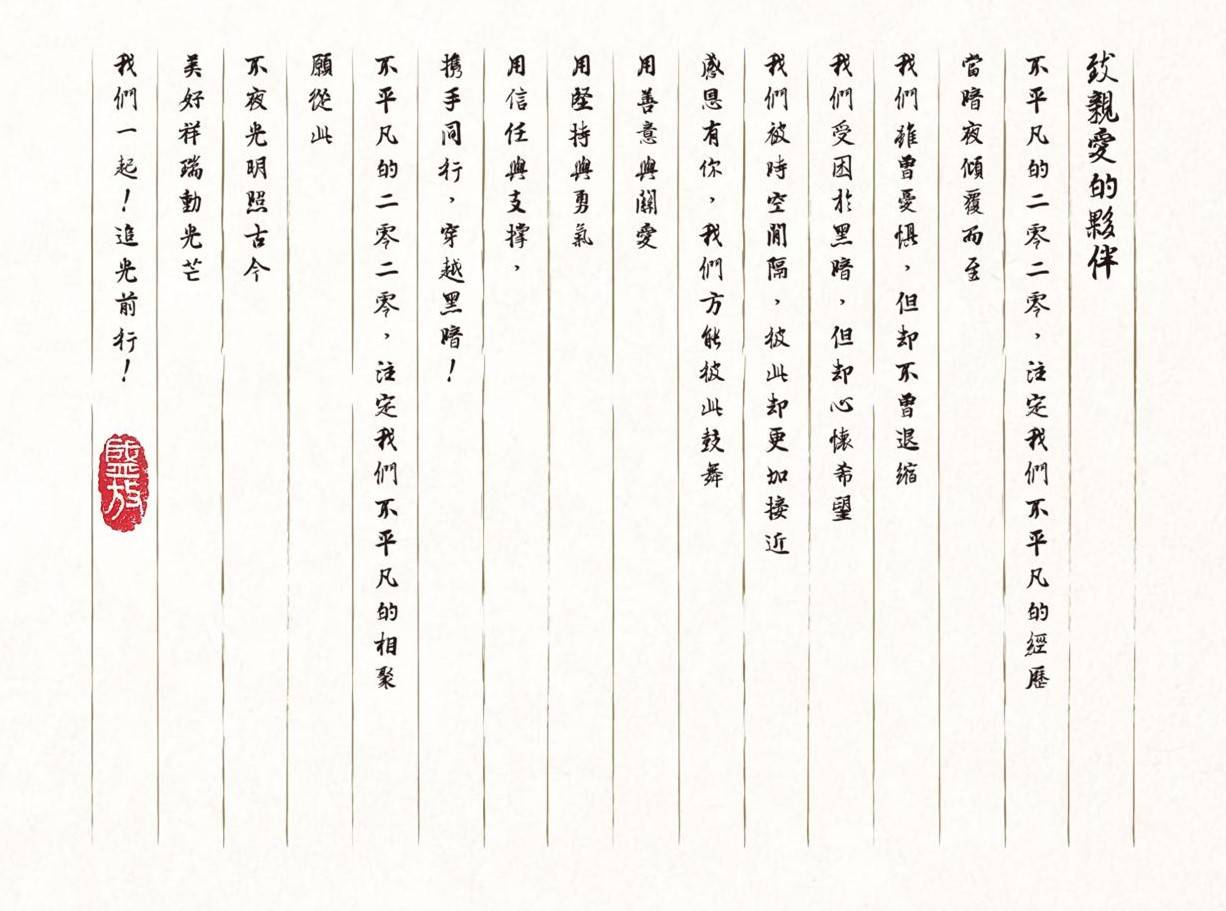 致親愛的夥伴
不平凡的二零二零，注定我們不平凡的經歷
當暗夜傾覆而至
我們雖曾憂懼，但却不曾退缩
我們受困於黑暗，但却心懷希望
我們被時空間隔，彼此却更加接近
感恩有你，我們方能彼此鼓舞
用善意與關愛
用堅持與勇氣
用信任與支撑，
携手同行，穿越黑暗！
不平凡的二零二零，注定我們不平凡的相聚
願從此
不夜光明照古今
美好祥瑞動光芒
我們一起！追光前行！
盛放